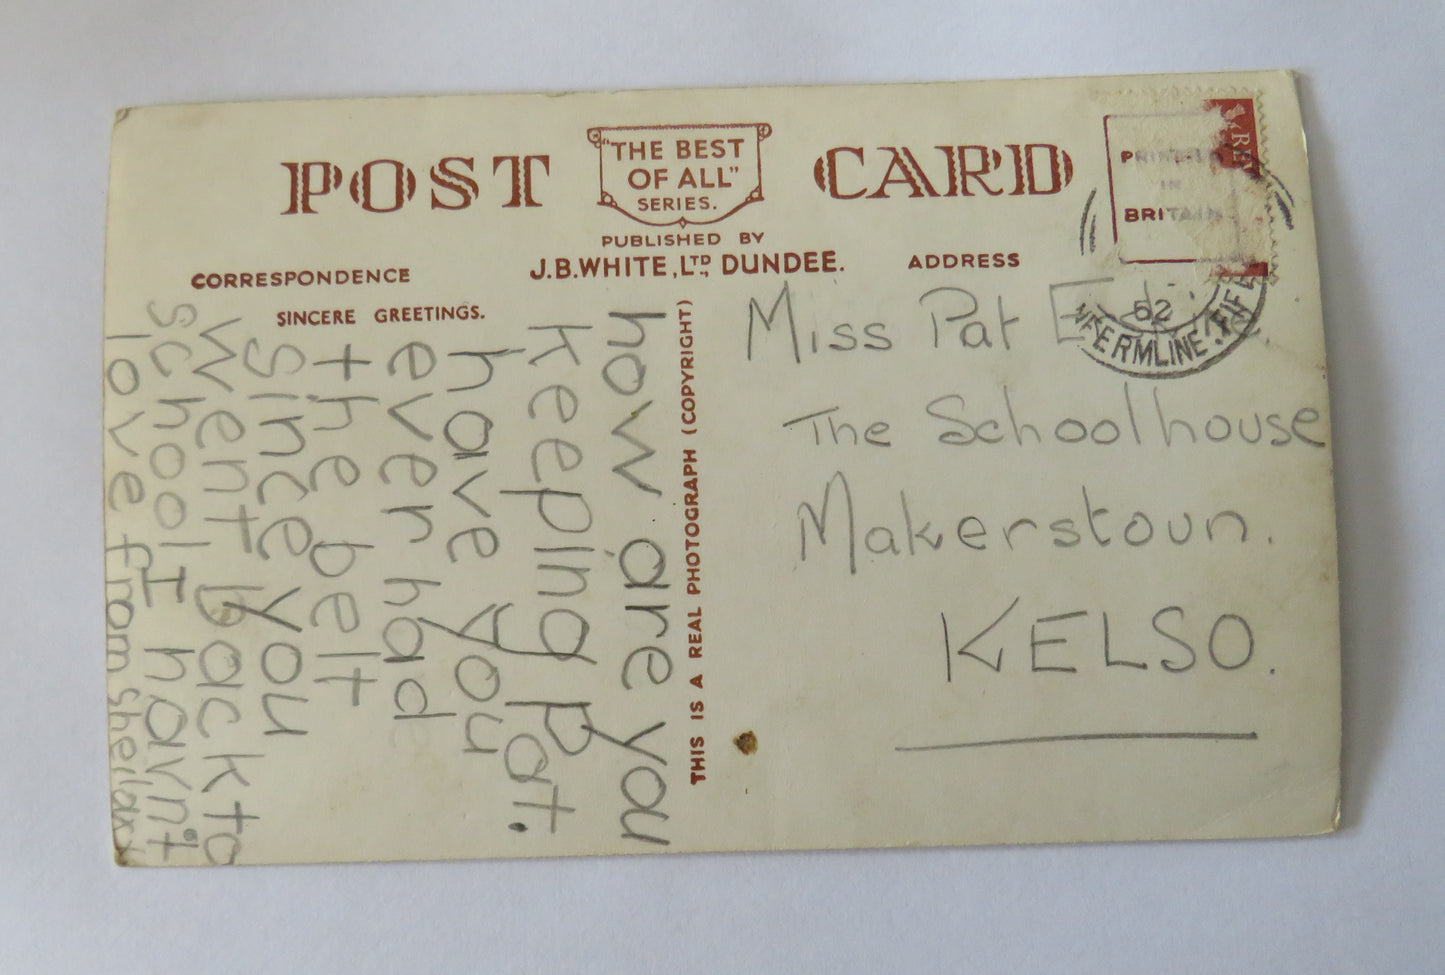 POST CARD
"THE BEST
OF ALL"
SERIES.
PUBLISHED BY
J.B.WHITE, LTD., DUNDEE.
CORRESPONDENCE
ADDRESS
SINCERE GREETINGS.
PRINTED
IN
BRITAIN
52
NFERMLINE. FIFE
THIS IS A REAL PHOTOGRAPH (COPYRIGHT)
how are you
keeping Pat.
have you
ever had
the belt
Since you
Went back to
School I havn't
love from Sheila x
Miss Pat
The Schoolhouse
Makerstoun.
KELSO.